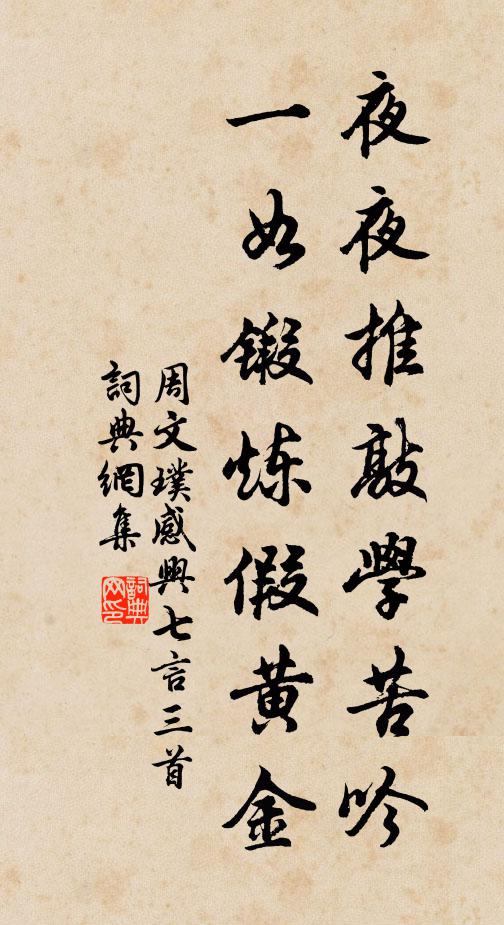 夜夜推敲學苦吟
一如鍛炼假黄金
周文璞感興七言三首
詞典網集
詞典
网印